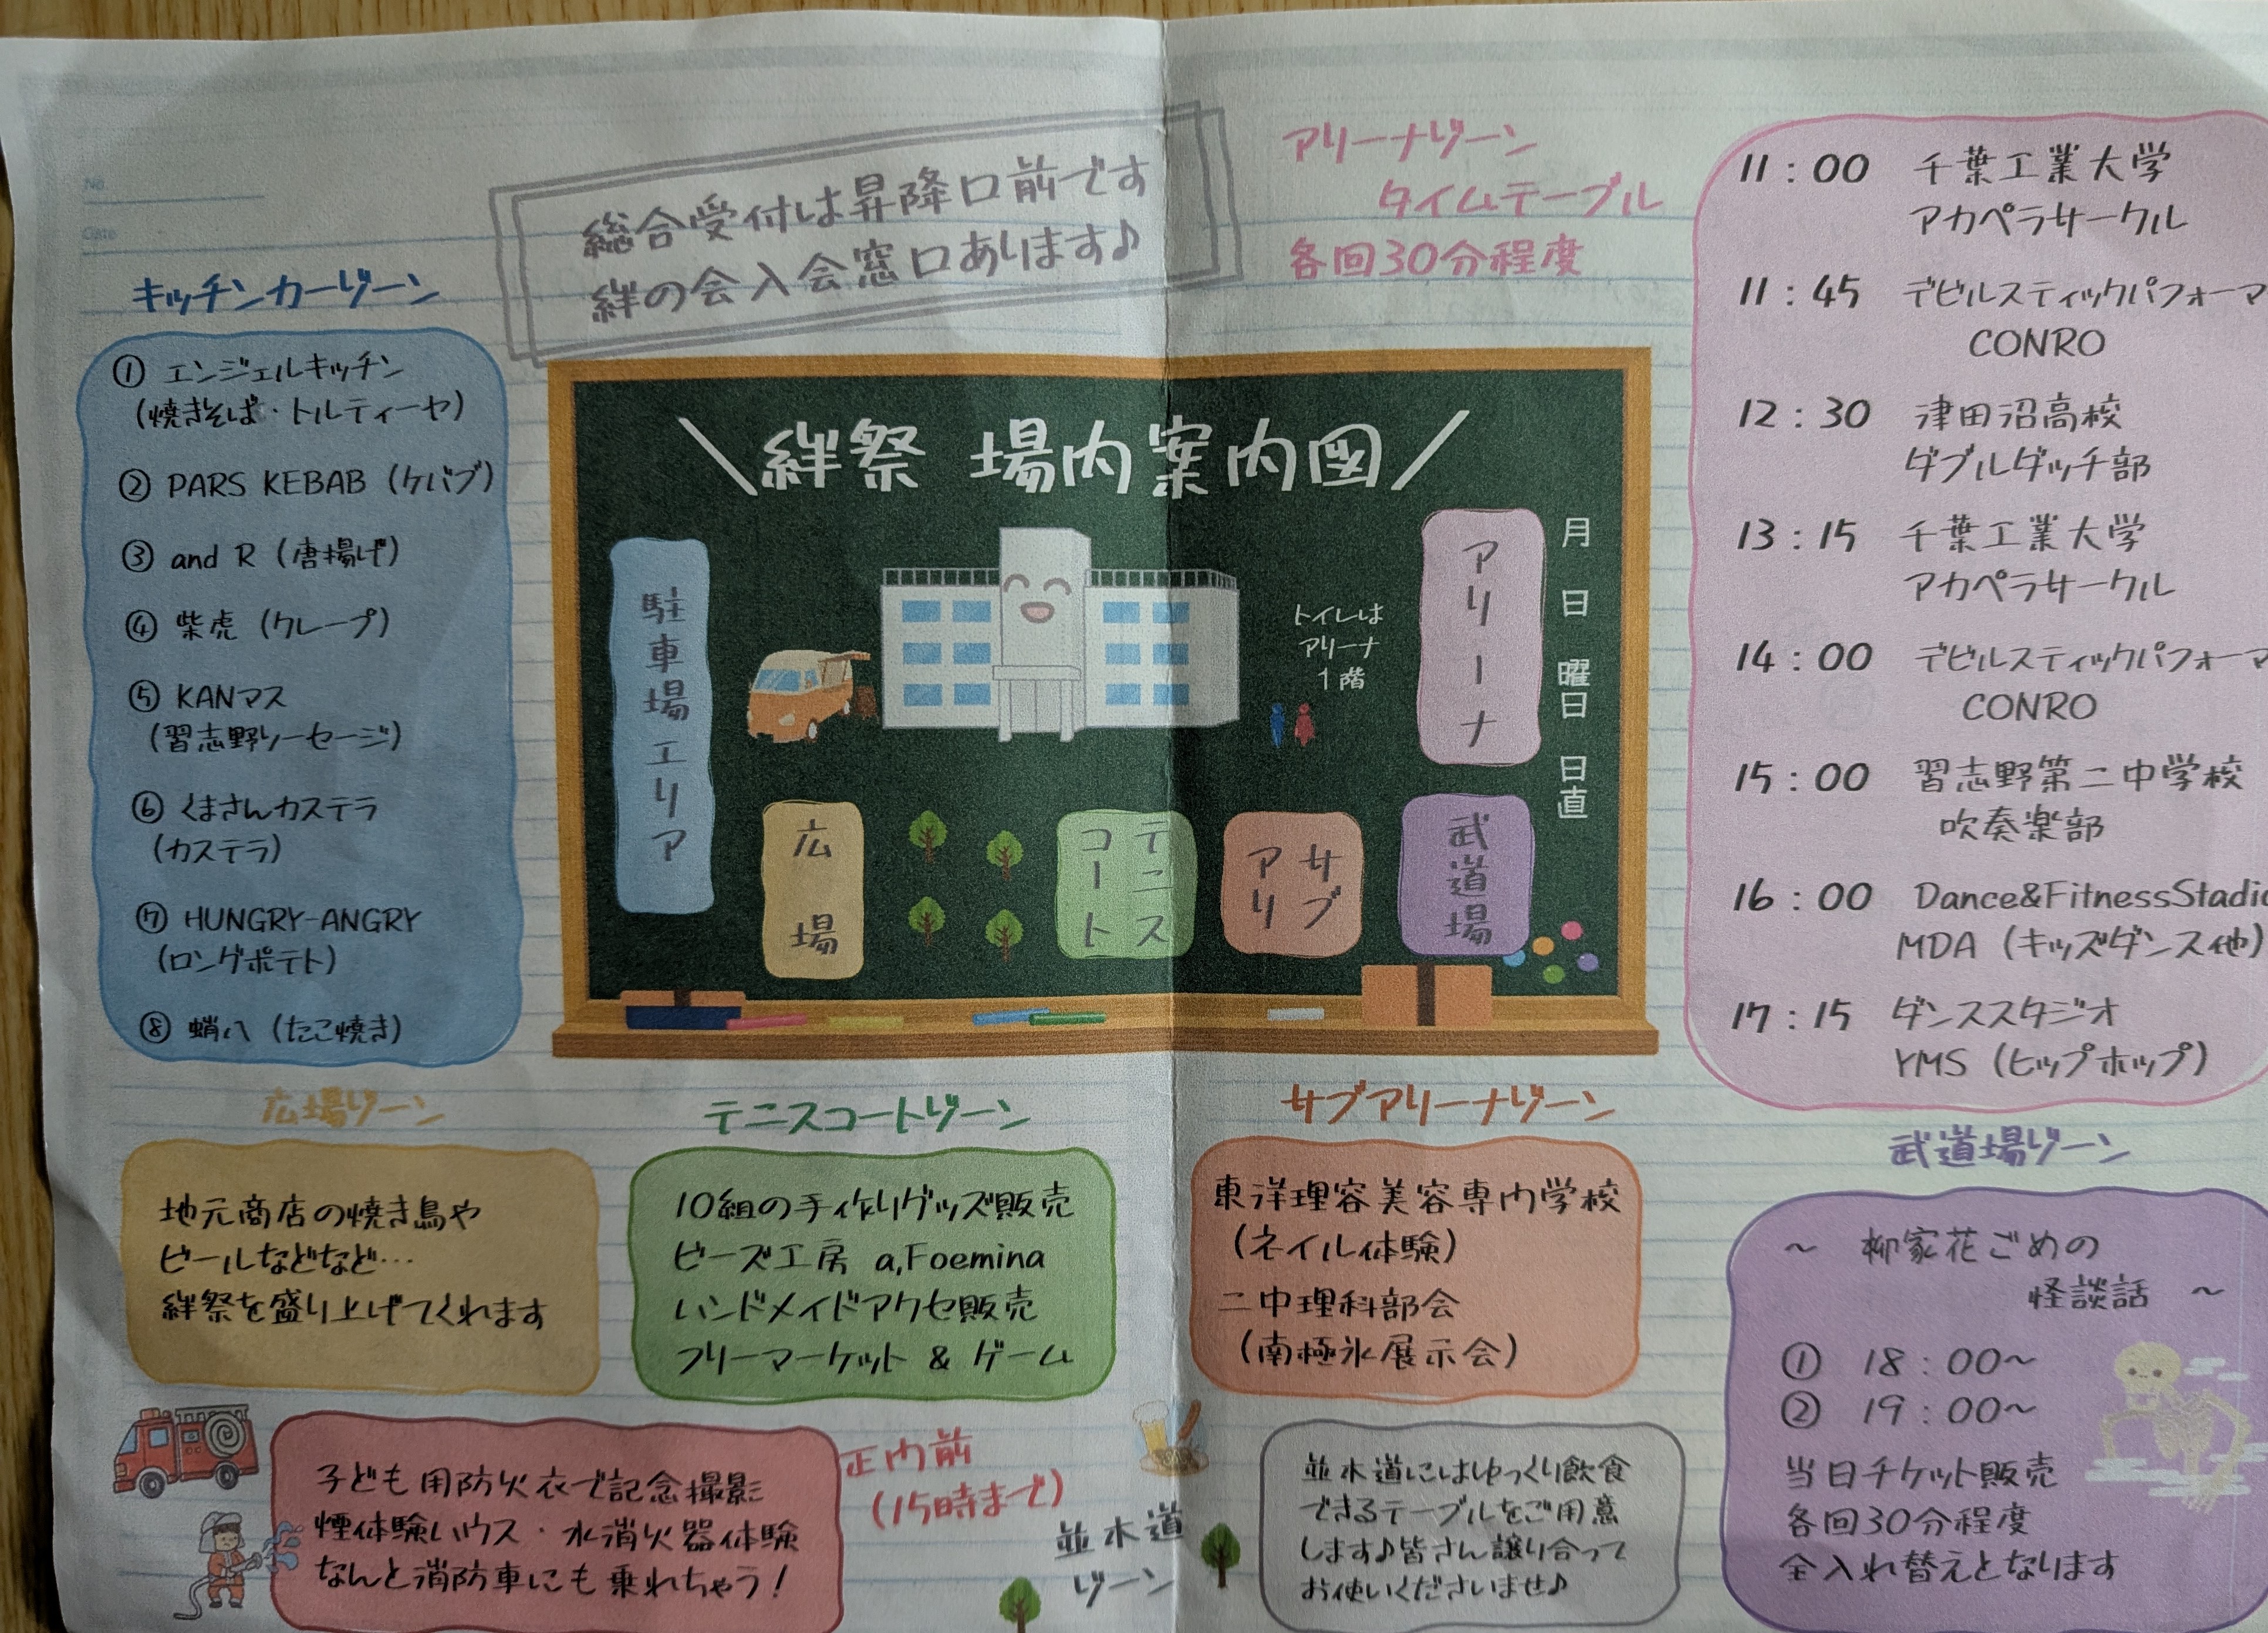 No.
Date
総合受付は昇降口前です
絆の会入会窓口あります♪
キッチンカーゾーン
① エンジェルキッチン
(焼きそば・トルティーヤ)
② PARS KEBAB (ケバブ)
③ and R (唐揚げ)
④ 柴虎 (クレープ)
⑤ KANマス
(習志野ソーセージ)
⑥ くまさんカステラ
(カステラ)
⑦ HUNGRY-ANGRY
(ロングポテト)
⑧ 蛸八 (たこ焼き)
\絆祭 場内案内図/
駐車場エリア
広場
テニス
コート
サブ
アリ
武道場
アリーナ
トイレは
アリーナ
1階
月 日 曜日 日直
アリーナゾーン
タイムテーブル
各回30分程度
11:00 千葉工業大学
アカペラサークル
11:45 デビルスティックパフォーマ
CONRO
12:30 津田沼高校
ダブルダッチ部
13:15 千葉工業大学
アカペラサークル
14:00 デビルスティックパフォーマ
CONRO
15:00 習志野第二中学校
吹奏楽部
16:00 Dance&FitnessStadio
MDA (キッズダンス他)
17:15 ダンススタジオ
YMS (ヒップホップ)
広場ゾーン
地元商店の焼き鳥や
ビールなどなど…
絆祭を盛り上げてくれます
テニスコートゾーン
10組の手作りグッズ販売
ビーズ工房 a,Foemina
ハンドメイドアクセ販売
フリーマーケット & ゲーム
サブアリーナゾーン
東洋理容美容専門学校
(ネイル体験)
二中理科部会
(南極氷展示会)
武道場ゾーン
～ 柳家花ごめの
怪談話 ～
① 18:00～
② 19:00～
当日チケット販売
各回30分程度
全入れ替えとなります
正門前
(15時まで)
子ども用防火衣で記念撮影
煙体験ハウス・水消火器体験
なんと消防車にも乗れちゃう!
並木道
ゾーン
並木道にはゆっくり飲食
できるテーブルをご用意
します♪皆さん譲り合って
お使いくださいませ♪